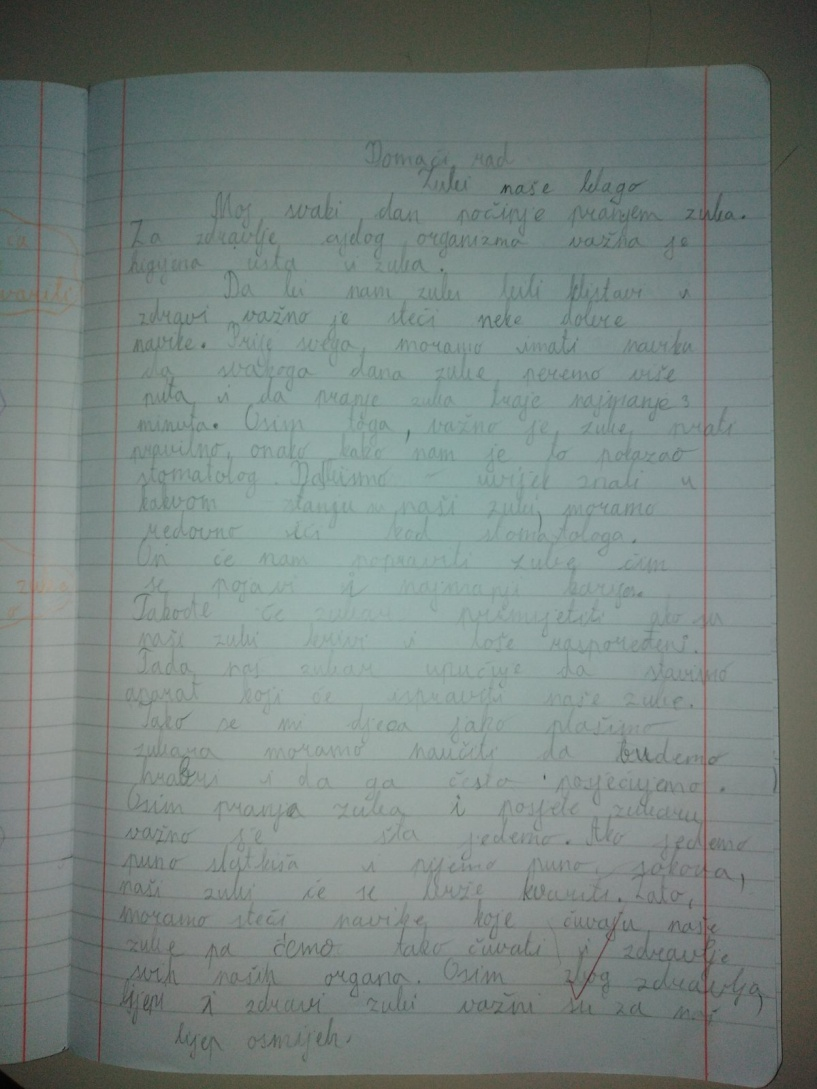 Domaći rad
Zubi naše blago
Moj svaki dan počinje pranjem zuba.
Za zdravlje cijelog organizma važna je
higijena usta i zuba.
Da bi nam zubi bili blistavi i
zdravi važno je steći neke dobre
navike. Prije svega, moramo imati naviku
da svakoga dana zube peremo više
puta i da pranje zuba traje najmanje 3
minuta. Osim toga, važno je zube prati
pravilno, onako kako nam je to pokazao
stomatolog. Da bismo uvijek znali u
kakvom stanju su naši zubi, moramo
redovno ići kod stomatologa.
On će nam popraviti zube čim
se pojavi i najmanji karijes.
Takođe će zubar primijetiti ako su
naši zubi krivi i loše raspoređeni.
Tada nas zubar upućuje da stavimo
aparat koji će ispraviti naše zube.
Iako se mi djeca jako plašimo
zubara moramo naučiti da budemo
hrabri i da ga često posjećujemo.
Osim pranja zuba i posjete zubaru
važno je šta jedemo. Ako jedemo
puno slatkiša i pijemo puno sokova,
naši zubi će se brže kvariti. Zato,
moramo steći navike koje čuvaju naše
zube pa ćemo tako čuvati i zdravlje
svih naših organa. Osim zbog zdravlja,
lijepi i zdravi zubi važni su za naš
lijep osmijeh.